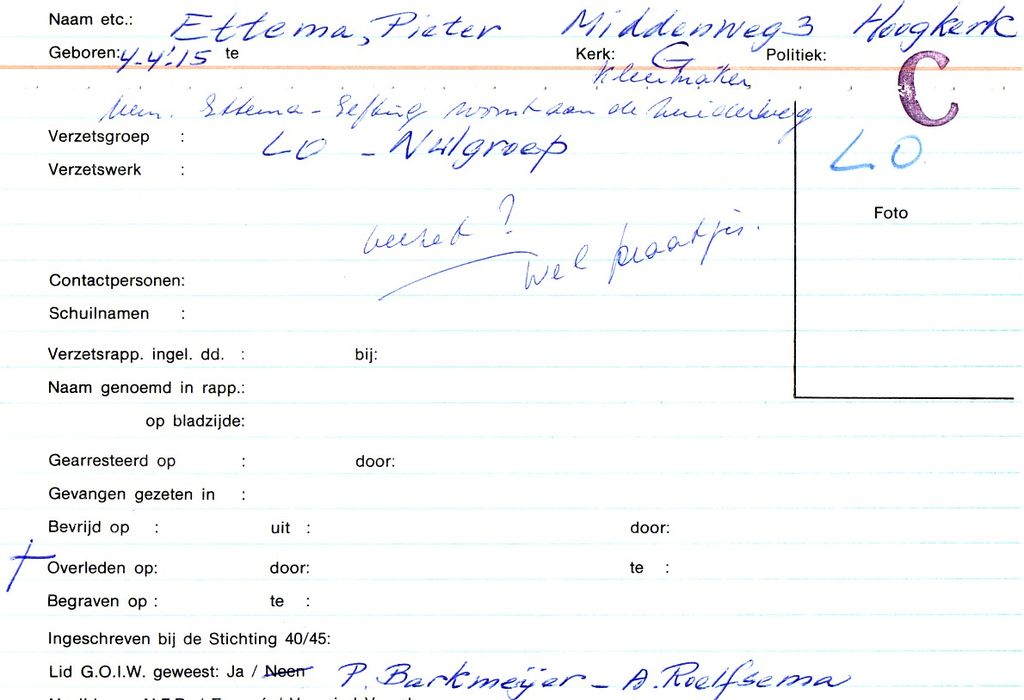 Naam etc.: Ettema, Pieter Middenweg 3 Hoogkerk
Geboren: 4-4-'15 te Kerk: G Politiek:
Kleermaker
C
Mevr. Ettema - woont aan de Zuiderweg
Verzetsgroep : LO - Nulgroep
LO
Verzetswerk :
Foto
verzet?
wel praatjes.
Contactpersonen:
Schuilnamen :
Verzetsrapp. ingel. dd. : bij:
Naam genoemd in rapp.:
op bladzijde:
Gearresteerd op : door:
Gevangen gezeten in :
Bevrijd op : uit : door:
† Overleden op: door: te :
Begraven op : te :
Ingeschreven bij de Stichting 40/45:
Lid G.O.I.W. geweest: Ja / Neen P. Barkmeijer - A. Roelfsema